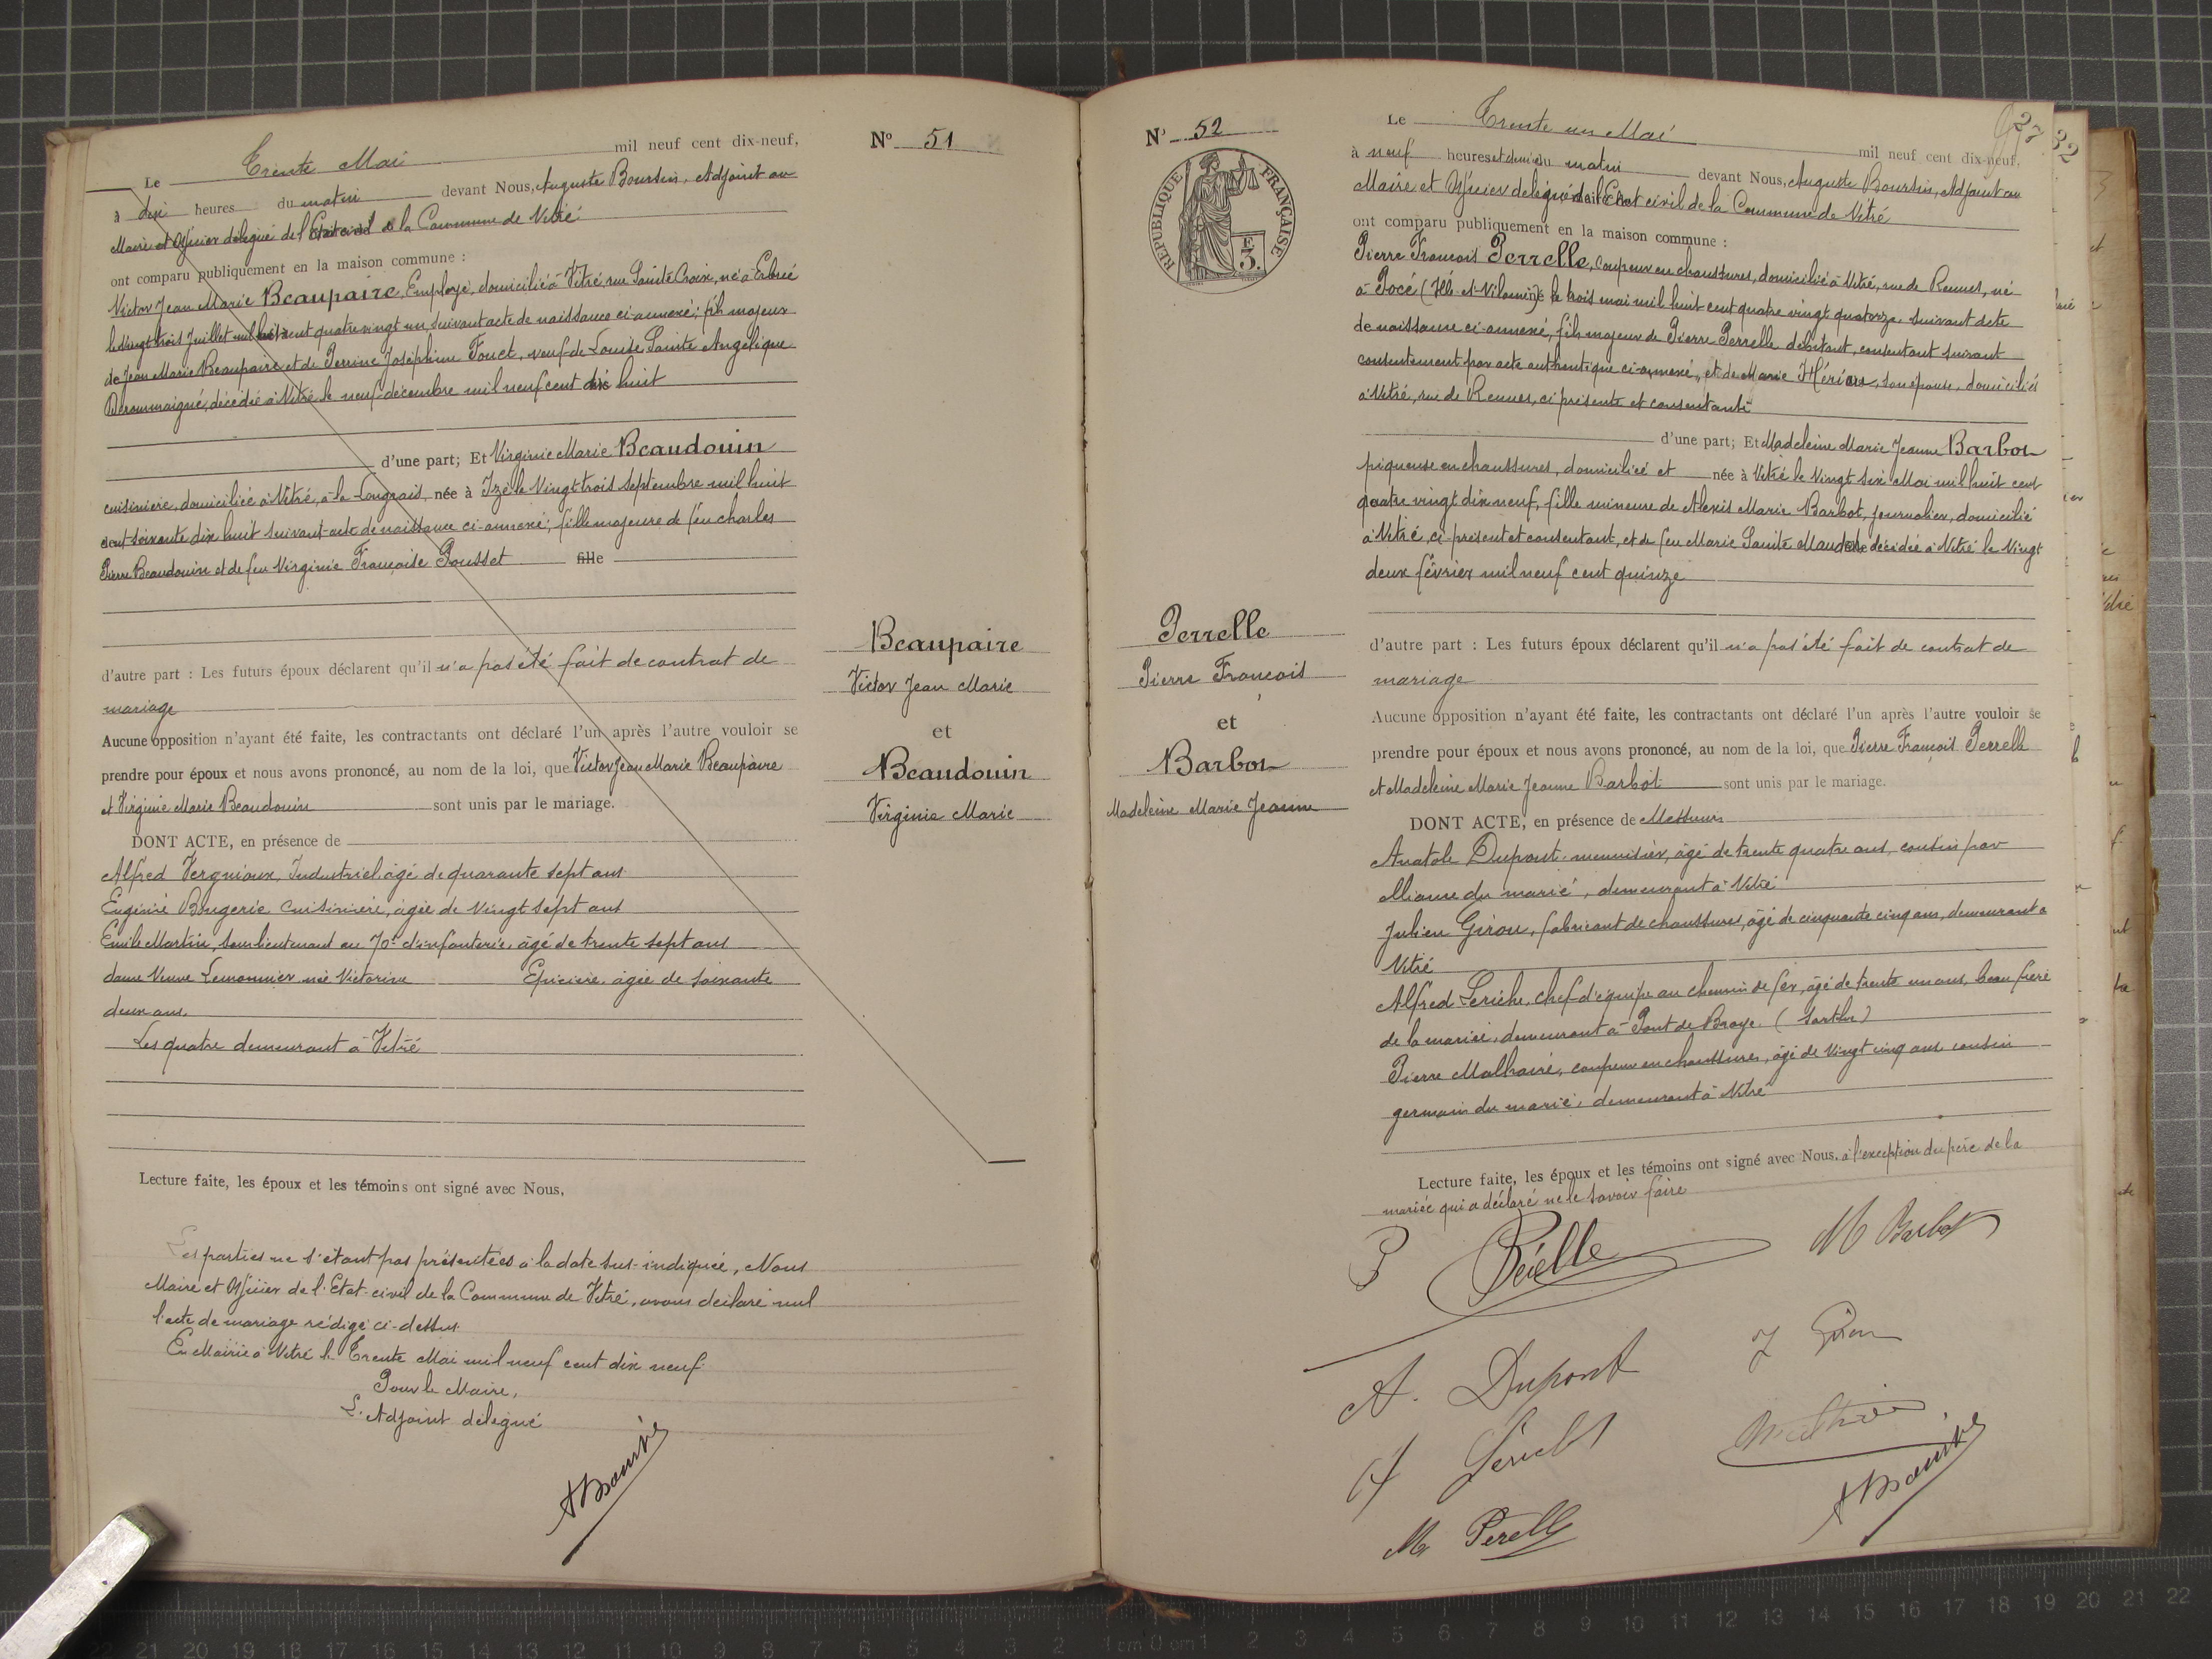 Le Trente Mai mil neuf cent dix-neuf,
à dix heures du matin devant Nous, Auguste Boursin, Adjoint au
Maire et Officier délégué de l'Etat civil de la Commune de Vitré
ont comparu publiquement en la maison commune :
Victor Jean Marie Beaupaire, Employé, domicilié à Vitré, rue Sainte Croix, né à Erbrée
le vingt trois Juillet mil huit cent quatre vingt un, suivant acte de naissance ci-annexé; fils majeur
de Jean Marie Beaupaire et de Perrine Joséphine Fouet, veuf de Louise Sainte Angélique
décédée à Vitré le neuf décembre mil neuf cent dix huit
d'une part; Et Virginie Marie Beaudouin
cuisinière, domiciliée à Vitré, à la Longrais, née à Izé le Vingt trois Septembre mil huit
cent soixante dix huit suivant acte de naissance ci-annexé; fille majeure de feu Charles
Pierre Beaudouin et de feu Virginie Françoise Pousset fille
d'autre part : Les futurs époux déclarent qu'il n'a pas été fait de contrat de
mariage
Aucune opposition n'ayant été faite, les contractants ont déclaré l'un après l'autre vouloir se
prendre pour époux et nous avons prononcé, au nom de la loi, que Victor Jean Marie Beaupaire
et Virginie Marie Beaudouin sont unis par le mariage.
DONT ACTE, en présence de
Alfred Vergnioux, Industriel, âgé de quarante sept ans
Eugénie Bougerie cuisinière, âgée de Vingt sept ans
Emile Martin, Sous lieutenant au 70e d'infanterie, âgé de trente sept ans
dame Veuve Lemonnier née Victorine Epicière, âgée de soixante
deux ans,
Les quatre demeurant à Vitré
Lecture faite, les époux et les témoins ont signé avec Nous,
Les parties ne s'étant pas présentées à la date sus-indiquée, Nous
Maire et Officier de l'Etat-civil de la Commune de Vitré, avons déclaré nul
l'acte de mariage rédigé ci-dessus.
En Mairie à Vitré le Trente Mai mil neuf cent dix neuf.
Pour le Maire,
L'Adjoint délégué
ABoursin
No 51
Beaupaire
Victor Jean Marie
et
Beaudouin
Virginie Marie
No 52
REPUBLIQUE FRANÇAISE
F.
3.
Perrelle
Pierre François
et
Barbot
Madeleine Marie Jeanne
27
32
Le Trente un Mai mil neuf cent dix-neuf,
à neuf heures et demie du matin devant Nous, Auguste Boursin, Adjoint au
Maire et Officier délégué de l'Etat civil de la Commune de Vitré
ont comparu publiquement en la maison commune :
Pierre François Perrelle, Coupeur en chaussures, domicilié à Vitré, rue de Rennes, né
à Pocé (Ille-et-Vilaine) le trois mai mil huit cent quatre vingt quatorze, suivant acte
de naissance ci-annexé, fils majeur de Pierre Perrelle débitant, consentant suivant
consentement par acte authentique ci-annexé, et de Marie son épouse, domiciliés
à Vitré, rue de Rennes, ci présente et consentante
d'une part; Et Madeleine Marie Jeanne Barbot
piqueuse en chaussures, domiciliée et née à Vitré le Vingt six Mai mil huit cent
quatre vingt dix neuf, fille mineure de Alexis Marie Barbot, journalier, domicilié
à Vitré, ci présent et consentant, et de feu Marie Sainte décédée à Vitré le Vingt
deux février mil neuf cent quinze
d'autre part : Les futurs époux déclarent qu'il n'a pas été fait de contrat de
mariage
Aucune opposition n'ayant été faite, les contractants ont déclaré l'un après l'autre vouloir se
prendre pour époux et nous avons prononcé, au nom de la loi, que Pierre François Perrelle
et Madeleine Marie Jeanne Barbot sont unis par le mariage.
DONT ACTE, en présence de Messieurs
Anatole Dupont, menuisier, âgé de trente quatre ans, cousin par
alliance du marié, demeurant à Vitré
Julien Girou, fabricant de chaussures, âgé de cinquante cinq ans, demeurant à
Vitré
Alfred Leriche, chef d'équipe au chemin de fer, âgé de trente un ans, beau frère
de la mariée, demeurant à Pont de Braye (Sarthe)
Pierre Malhaire, coupeur en chaussures, âgé de Vingt cinq ans, cousin
germain du marié, demeurant à Vitré
Lecture faite, les époux et les témoins ont signé avec Nous, à l'exception du père de la
mariée qui a déclaré ne le savoir faire
P Pérelle M Barbot
A. Dupont J Girou
M Perelle
ABoursin
22 21 20 19 18 17 16 15 14 13 12 11 10 9 8 7 6 5 4 3 2 1 cm 0 cm 1 2 3 4 5 6 7 8 9 10 11 12 13 14 15 16 17 18 19 20 21 22